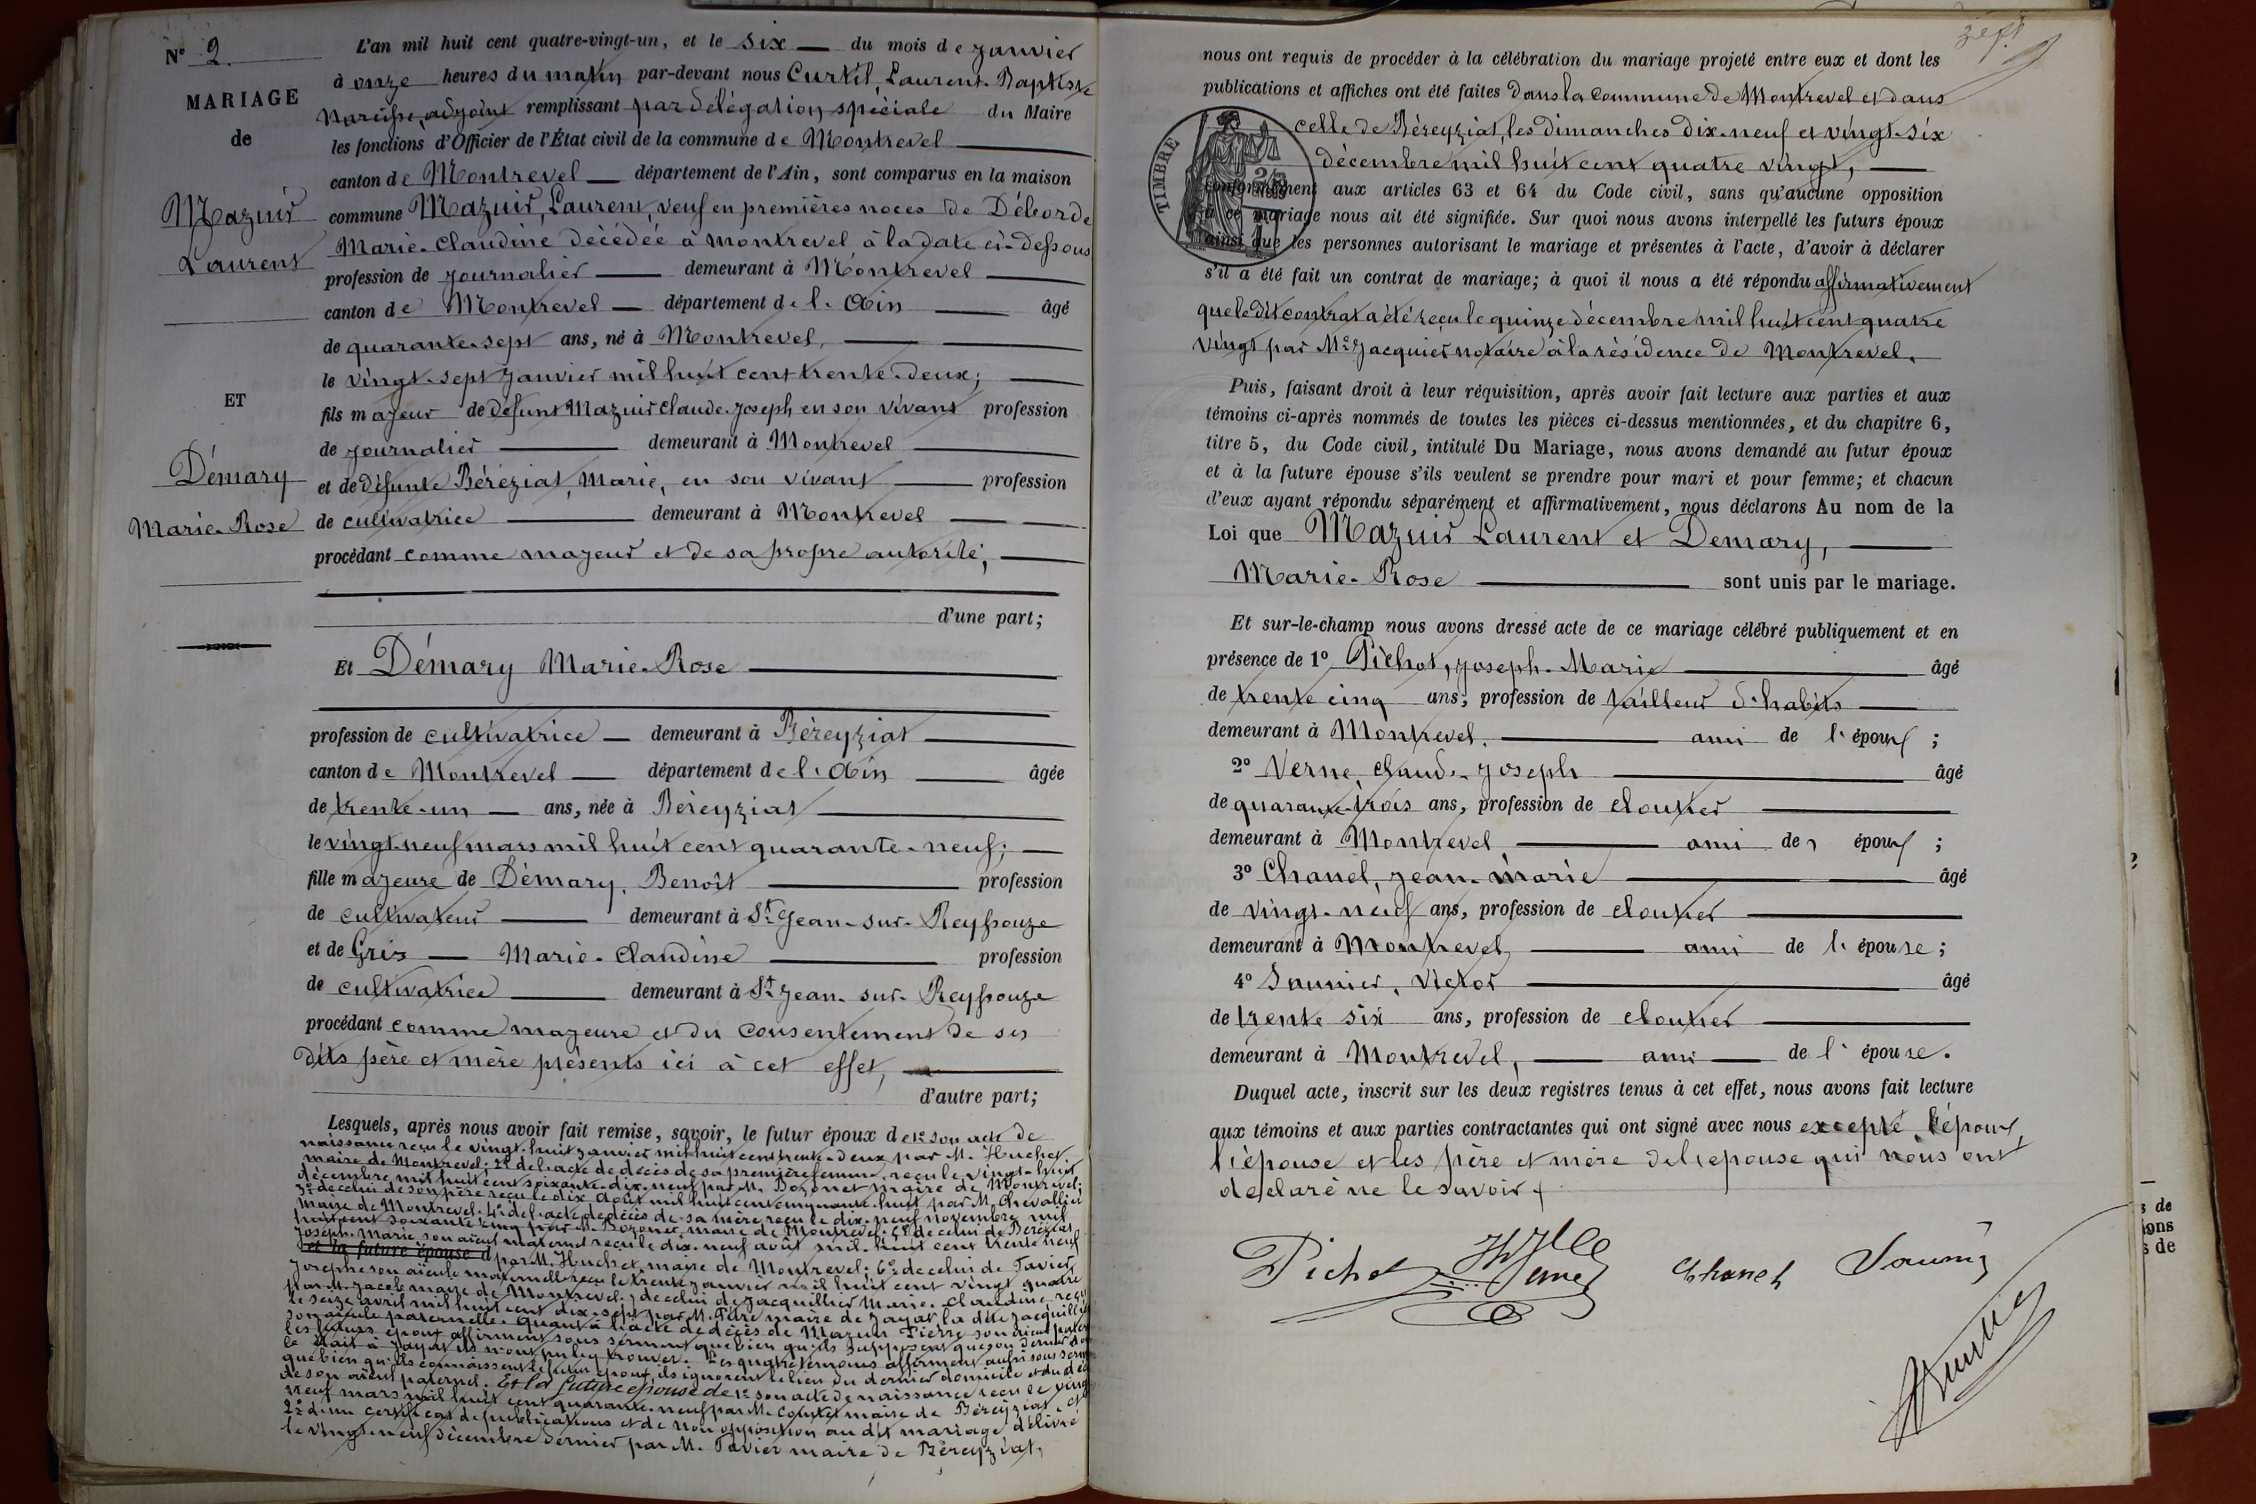 N° 2
MARIAGE
de
Mazuir
Laurent
ET
Démary
Marie-Rose
L'an mil huit cent quatre-vingt-un, et le six du mois de janvier
à onze heures du matin par-devant nous Curtil, Laurent-Baptiste
Narcisse, adjoint remplissant par délégation spéciale du Maire
les fonctions d'Officier de l'État civil de la commune de Montrevel
canton de Montrevel département de l'Ain, sont comparus en la maison
commune Mazuir, Laurent, veuf en premières noces de Déborde
Marie-Claudine décédée à Montrevel à la date ci-dessous
profession de journalier demeurant à Montrevel
canton de Montrevel département de l'Ain âgé
de quarante-sept ans, né à Montrevel,
le vingt-sept janvier mil huit cent trente-deux;
fils majeur de défunt Mazuir Claude-Joseph en son vivant profession
de journalier demeurant à Montrevel
et de défunte Béréziat, Marie, en son vivant profession
de cultivatrice demeurant à Montrevel
procédant comme majeur et de sa propre autorité,
d'une part;
Et Démary Marie-Rose
profession de cultivatrice demeurant à Béreyziat
canton de Montrevel département de l'Ain âgée
de trente-un ans, née à Béreyziat
le vingt-neuf mars mil huit cent quarante-neuf;
fille majeure de Démary, Benoît profession
de cultivateur demeurant à St Jean-sur-Reyssouze
et de Gris Marie-Claudine profession
de cultivatrice demeurant à St Jean-sur-Reyssouze
procédant comme majeure et du consentement de ses
dits père et mère présents ici à cet effet,
d'autre part;
Lesquels, après nous avoir fait remise, savoir, le futur époux de 1° son acte de
naissance reçu le vingt-huit janvier mil huit cent trente-deux par M. Huchet
maire de Montrevel; 2° de l'acte de décès de sa première femme, reçu le vingt-huit
décembre mil huit cent soixante-dix-neuf par M. Bozonet maire de Montrevel;
3° de celui de son père reçu le dix août mil huit cent cinquante-huit par M. Chevallier
maire de Montrevel; 4° de l'acte de décès de sa mère reçu le dix-neuf novembre mil
huit cent soixante cinq par M. Bozonet, maire de Montrevel; 5° de celui de Béréziat
Joseph-Marie son aïeul maternel reçu le dix-neuf août mil huit cent trente neuf
et la future épouse d par M. Huchet, maire de Montrevel; 6° de celui de Tavier
Josephe son aïeule maternelle reçu le trente janvier mil huit cent vingt quatre
par M. Jacob maire de Montrevel; 7° de celui de Jacquillier Marie-Claudine reçu
le seize avril mil huit cent dix-sept par M. maire de Jayat la dite Jacquillier
son aïeule paternelle. Quant à l'acte de décès de Mazuir Pierre son aïeul pater
les futurs époux affirment sous serment que bien qu'ils supposent que son dernier dom
le était à Jayat ils n'ont pu l'y trouver. Les quatre témoins affirment aussi sous serm
que bien qu'ils connaissent le futur époux, ils ignorent le lieu du dernier domicile et du déc
de son aïeul paternel. Et la future épouse de 1° son acte de naissance reçu le vingt
neuf mars mil huit cent quarante-neuf par M. Contet maire de Béreyziat, et
2° d'un certificat de publications et de non opposition au dit mariage délivré
le vingt-neuf décembre dernier par M. Tavier maire de Béreyziat,
sept
nous ont requis de procéder à la célébration du mariage projeté entre eux et dont les
publications et affiches ont été faites dans la commune de Montrevel et dans
celle de Béreyziat, les dimanches dix-neuf et vingt-six
décembre mil huit cent quatre vingt,
TIMBRE
conformément aux articles 63 et 64 du Code civil, sans qu'aucune opposition
à ce mariage nous ait été signifiée. Sur quoi nous avons interpellé les futurs époux
ainsi que les personnes autorisant le mariage et présentes à l'acte, d'avoir à déclarer
s'il a été fait un contrat de mariage; à quoi il nous a été répondu affirmativement
que le dit contrat a été reçu le quinze décembre mil huit cent quatre
vingt par Me Jacquier notaire à la résidence de Montrevel.
Puis, faisant droit à leur réquisition, après avoir fait lecture aux parties et aux
témoins ci-après nommés de toutes les pièces ci-dessus mentionnées, et du chapitre 6,
titre 5, du Code civil, intitulé Du Mariage, nous avons demandé au futur époux
et à la future épouse s'ils veulent se prendre pour mari et pour femme; et chacun
d'eux ayant répondu séparément et affirmativement, nous déclarons Au nom de la
Loi que Mazuir Laurent et Demary,
Marie-Rose sont unis par le mariage.
Et sur-le-champ nous avons dressé acte de ce mariage célébré publiquement et en
présence de 1° Pichot, Joseph-Marie âgé
de trente cinq ans, profession de tailleur d'habits
demeurant à Montrevel. ami de l'époux;
2° Verne, Claude-Joseph âgé
de quarante-trois ans, profession de cloutier
demeurant à Montrevel, ami de l'époux;
3° Chanel, Jean-Marie âgé
de vingt-neuf ans, profession de cloutier
demeurant à Montrevel, ami de l'épouse;
4° Saunier, Victor âgé
de trente six ans, profession de cloutier
demeurant à Montrevel, ami de l'épouse.
Duquel acte, inscrit sur les deux registres tenus à cet effet, nous avons fait lecture
aux témoins et aux parties contractantes qui ont signé avec nous excepté l'époux,
l'épouse et les père et mère de l'épouse qui nous ont
déclaré ne le savoir
Pichot Verne Chanel Saunier